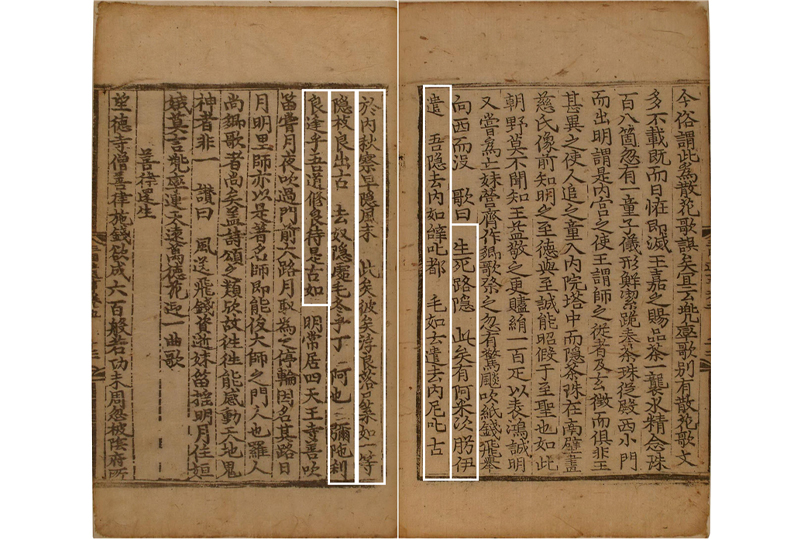 今俗謂此爲散花歌誤矣宜云兜率歌別有散花歌文
多不載既而日恠即滅王嘉之賜品茶一襲水精念珠
百八箇忽有一童子儀形鮮潔跪奉茶珠從殿西小門
而出明謂是內宮之使王謂師之從者及玄徵而俱非王
甚異之使人追之童入內院塔中而隱茶珠在南壁畫
慈氏像前知明之至德與至誠能昭假于至聖也如此
朝野莫不聞知王益敬之更贐絹一百疋以表鴻誠明
又嘗爲亡妹營齋作鄕歌祭之忽有驚颷吹紙錢飛擧
向西而没 歌曰 生死路隱 此矣有阿米次肹伊
遣 吾隱去內如辝叱都 毛如云遣去內尼叱古
於內秋察早隱風未 此矣彼矣浮良落尸葉如一等
隱枝良出古 去奴隱處毛冬乎丁 阿也 彌陁刹
良逢乎吾道修良待是古如 明常居四天王寺善吹
笛嘗月夜吹過門前大路月馭爲之停輪因名其路曰
月明里師亦以是著名師即能俊大師之門人也羅人
尚鄕歌者尚矣盖詩頌之類歟故徃徃能感動天地鬼
神者非一 讚曰 風送飛錢資逝妹笛搖明月住姮
娥莫言兜率連天遠萬德花迎一曲歌
善律還生
望德寺僧善律施錢欲成六百般若功未周忽被陰府所